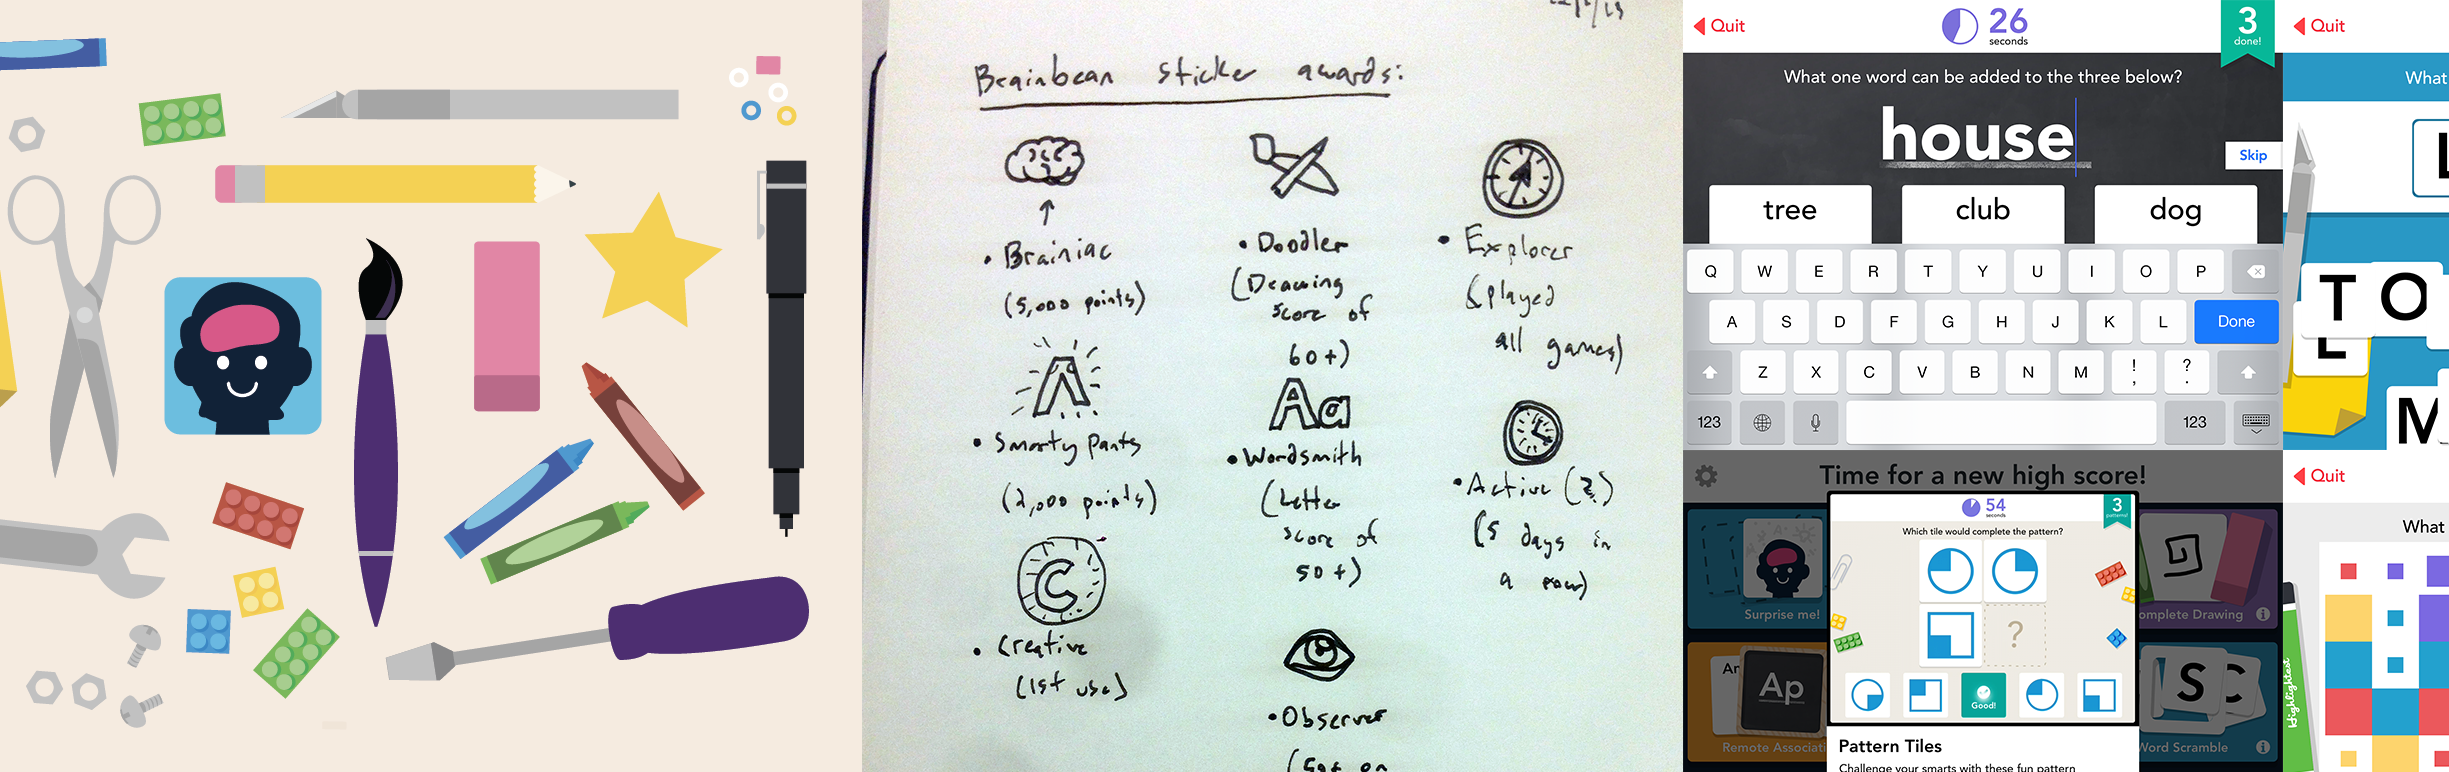 Brainbean sticker awards:
• Brainiac
(5,000 points)
• Smarty Pants
(2,000 points)
C
• Creative
(1st use)
• Doodler
(Drawing
score of
60+)
Aa
• Wordsmith
(Letter
score of
50+)
• Observer
• Explorer
(played
all games)
• Active (?)
(5 days in
a row)
Quit
26
seconds
3
done!
What one word can be added to the three below?
house
Skip
tree
club
dog
Q W E R T Y U I O P
A S D F G H J K L Done
Z X C V B N M ! , ? .
123 123
Time for a new high score!
54
seconds
3
patterns!
Which tile would complete the pattern?
?
Good!
Surprise me!
Complete Drawing
Ap
Remote Associati
S C
Word Scramble
Pattern Tiles
Challenge your smarts with these fun pattern
Quit
What
L
T O
L
M
Quit
What
Highlightest